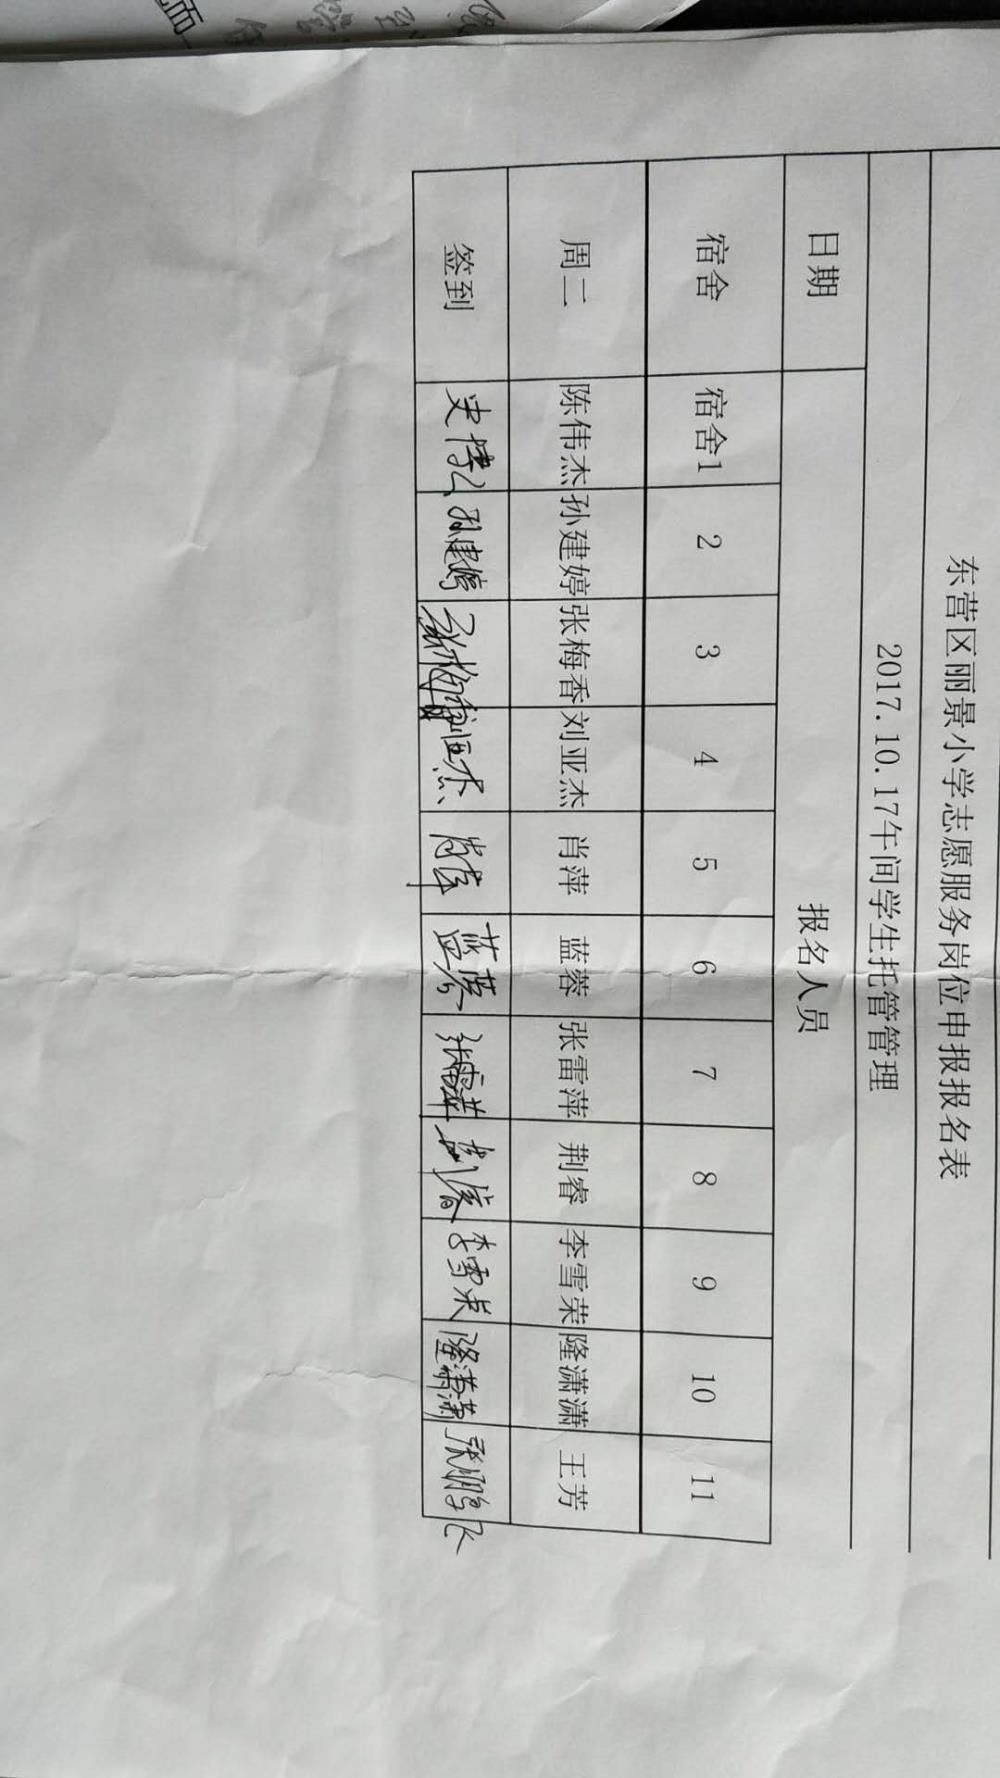 东营区丽景小学志愿服务岗位申报报名表
2017.10.17午间学生托管管理
日期 报名人员
宿舍 宿舍1 2 3 4 5 6 7 8 9 10 11
周二 陈伟杰 孙建婷 张梅香 刘亚杰 肖萍 蓝蓉 张雷萍 荆睿 李雪荣 隆潇潇 王芳
签到 孙建婷 张梅香 刘亚杰 肖萍 蓝蓉 张雷萍 荆睿 李雪荣 隆潇潇 张鹏飞